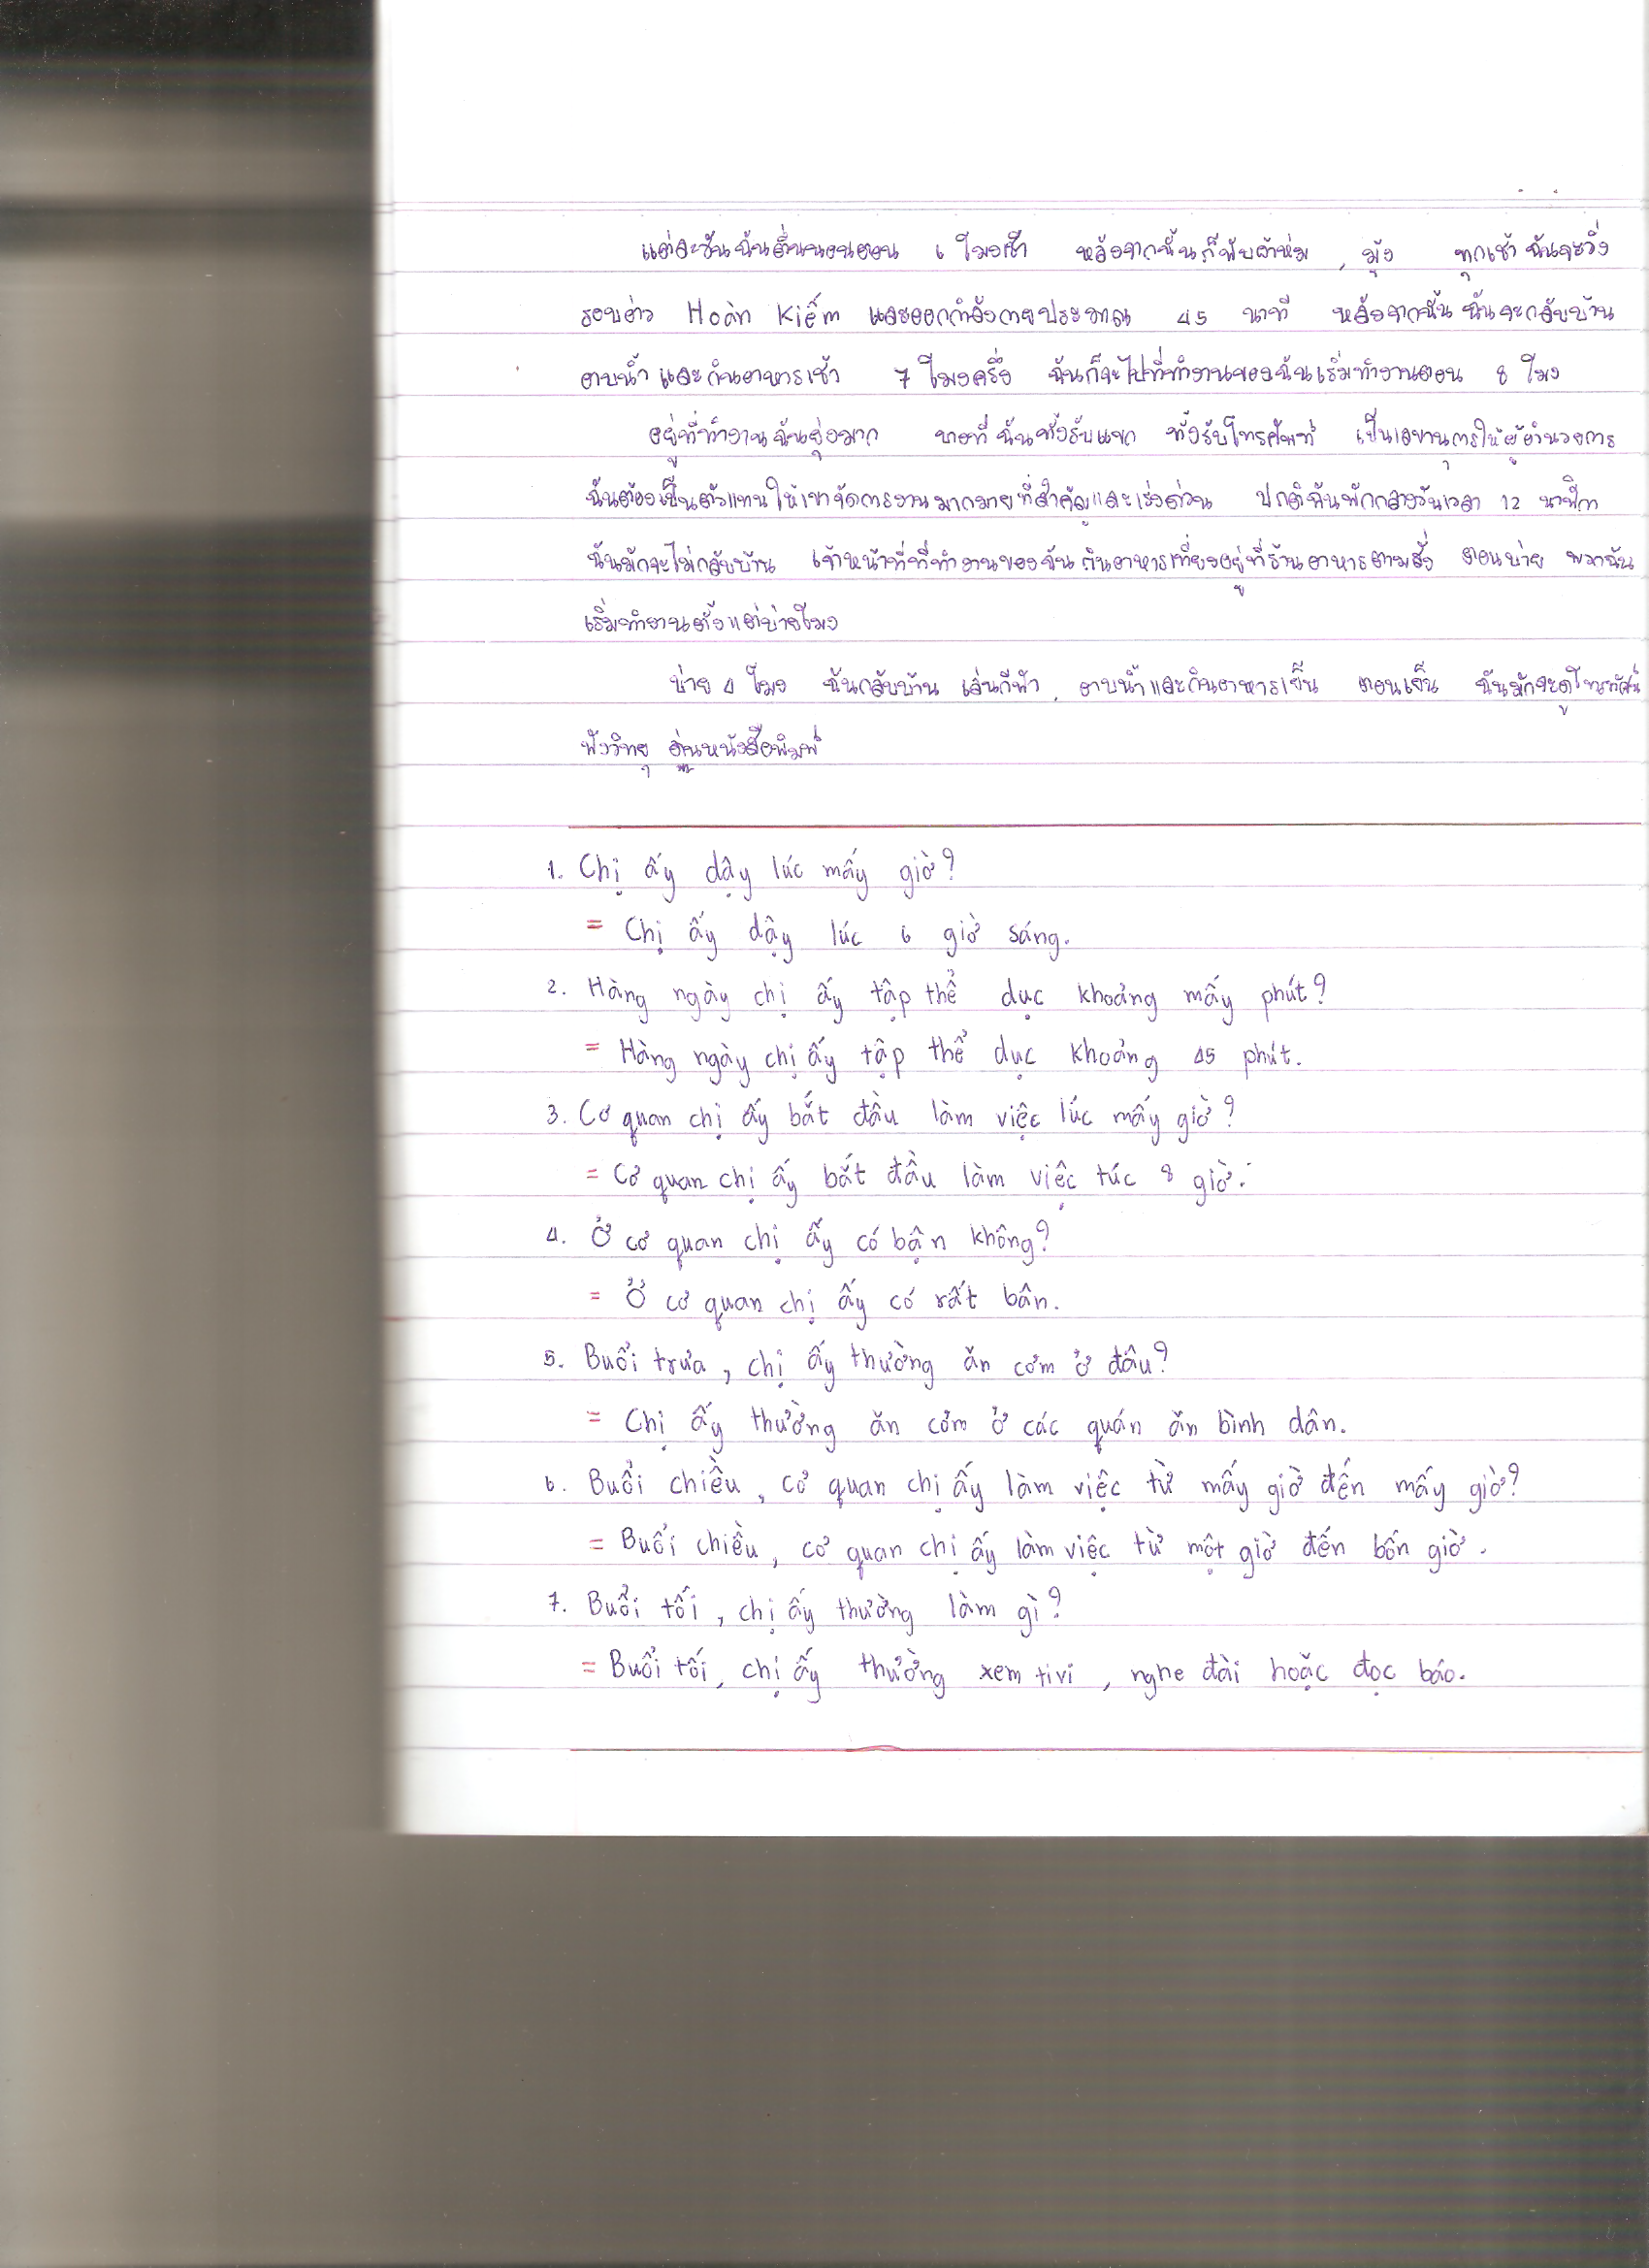 แต่ละวันฉันตื่นนอนตอน 6 โมงเช้า หลังจากนั้นก็พับผ้าห่ม , มุ้ง ทุกเช้าฉันจะวิ่ง
รอบอ่าว Hoàn Kiếm และออกกำลังกายประมาณ 45 นาที หลังจากนั้น ฉันจะกลับบ้าน
อาบน้ำและกินอาหารเช้า 7 โมงครึ่ง ฉันก็จะไปที่ทำงานของฉันเริ่มทำงานตอน 8 โมง
อยู่ที่ทำงานฉันยุ่งมาก บางที่ฉันทั้งรับแขก ทั้งรับโทรศัพท์ เป็นเลขานุการให้ผู้อำนวยการ
ฉันต้องเป็นตัวแทนให้เขาจัดการงานมากมายที่สำคัญและเร่งด่วน ปกติฉันพักกลางวันเวลา 12 นาฬิกา
ฉันมักจะไม่กลับบ้าน เจ้าหน้าที่ที่ทำงานของฉันกินอาหารเที่ยงอยู่ที่ร้านอาหารตามสั่ง ตอนบ่าย พวกฉัน
เริ่มทำงานตั้งแต่บ่ายโมง
บ่าย 4 โมง ฉันกลับบ้าน เล่นกีฬา , อาบน้ำและกินอาหารเย็น ตอนเย็น ฉันมักจะดูโทรทัศน์
ฟังวิทยุ หนังสือพิมพ์
1. Chị ấy dậy lúc mấy giờ?
= Chị ấy dậy lúc 6 giờ sáng.
2. Hàng ngày chị ấy tập thể dục khoảng mấy phút?
= Hàng ngày chị ấy tập thể dục khoảng 45 phút.
3. Cơ quan chị ấy bắt đầu làm việc lúc mấy giờ?
= Cơ quan chị ấy bắt đầu làm việc túc 8 giờ.
4. Ở cơ quan chị ấy có bận không?
= Ở cơ quan chị ấy có rất bân.
5. Buổi trưa, chị ấy thường ăn cơm ở đâu?
= Chị ấy thường ăn cơm ở các quán ăn bình dân.
6. Buổi chiều, cơ quan chị ấy làm việc từ mấy giờ đến mấy giờ?
= Buổi chiều, cơ quan chị ấy làm việc từ một giờ đến bốn giờ.
7. Buổi tối, chị ấy thường làm gì?
= Buổi tối, chị ấy thường xem tivi, nghe đài hoặc đọc báo.